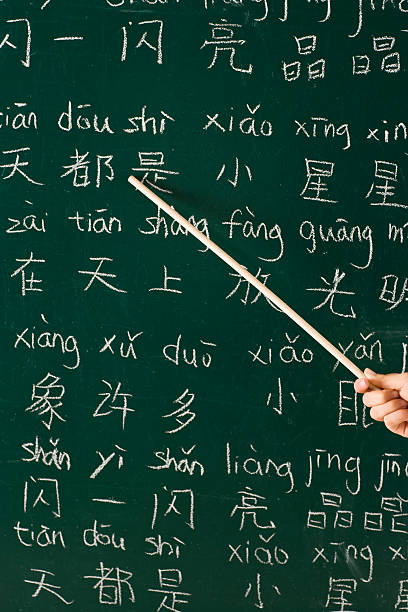 shǎn liàng jīng
闪一闪亮晶晶
tiān dōu shì xiǎo xīng xīn
天都是小星星
zài tiān shàng fàng guāng m
在天上放光明
xiàng xǔ duō xiǎo yǎn
象许多小
shǎn yì shǎn liàng jīng jīn
闪一闪亮晶晶
tiān dōu shì xiǎo xīng xīn
天都是小星星